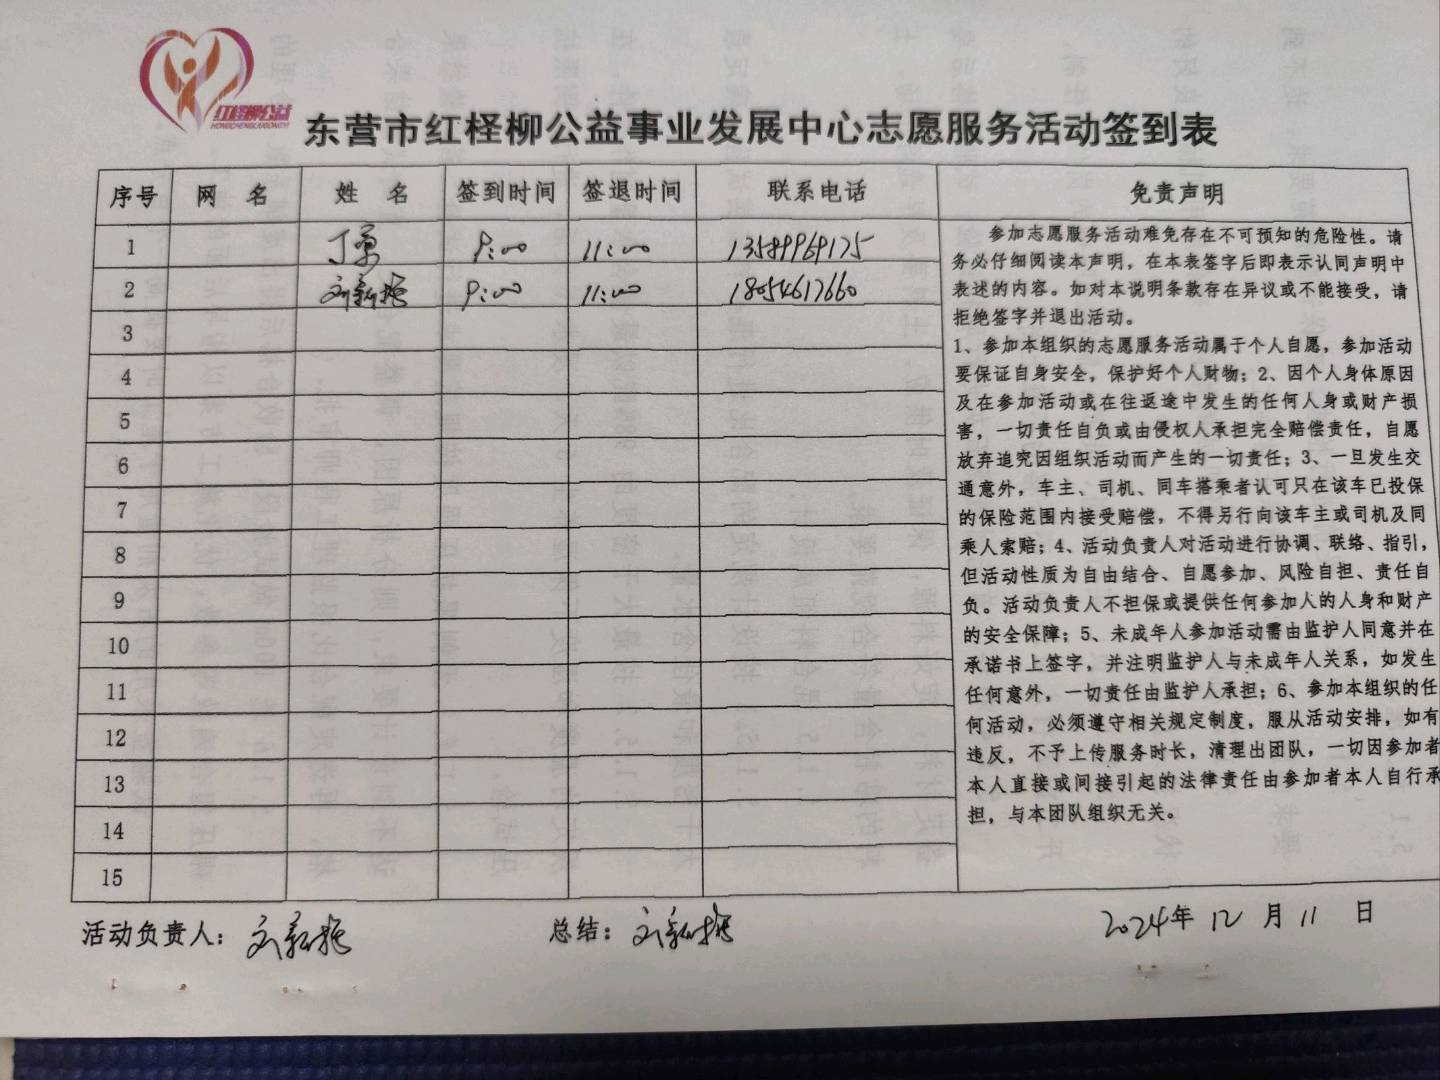 红柽柳公益
HONGCHENGLIUGONGYI
东营市红柽柳公益事业发展中心志愿服务活动签到表
序号 网 名 姓 名 签到时间 签退时间 联系电话 免责声明
1 丁勇 9:00 11:00 13589969175
2 刘新艳 9:00 11:00 18054617660
3
4
5
6
7
8
9
10
11
12
13
14
15
参加志愿服务活动难免存在不可预知的危险性。请
务必仔细阅读本声明，在本表签字后即表示认同声明中
表述的内容。如对本说明条款存在异议或不能接受，请
拒绝签字并退出活动。
1、参加本组织的志愿服务活动属于个人自愿，参加活动
要保证自身安全，保护好个人财物；2、因个人身体原因
及在参加活动或在往返途中发生的任何人身或财产损
害，一切责任自负或由侵权人承担完全赔偿责任，自愿
放弃追究因组织活动而产生的一切责任；3、一旦发生交
通意外，车主、司机、同车搭乘者认可只在该车已投保
的保险范围内接受赔偿，不得另行向该车主或司机及同
乘人索赔；4、活动负责人对活动进行协调、联络、指引，
但活动性质为自由结合、自愿参加、风险自担、责任自
负。活动负责人不担保或提供任何参加人的人身和财产
的安全保障；5、未成年人参加活动需由监护人同意并在
承诺书上签字，并注明监护人与未成年人关系，如发生
任何意外，一切责任由监护人承担；6、参加本组织的任
何活动，必须遵守相关规定制度，服从活动安排，如有
违反，不予上传服务时长，清理出团队，一切因参加者
本人直接或间接引起的法律责任由参加者本人自行承
担，与本团队组织无关。
活动负责人：刘新艳 总结：刘新艳 2024年 12 月 11 日